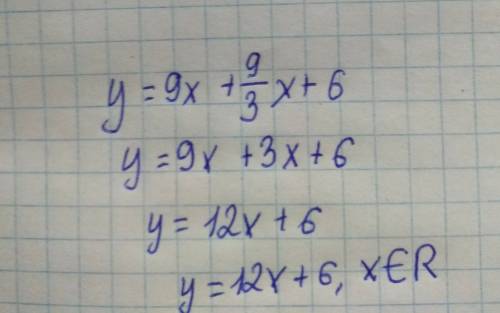 y = 9x + 9/3 x + 6
y = 9x + 3x + 6
y = 12x + 6
y = 12x + 6, x ∈ R